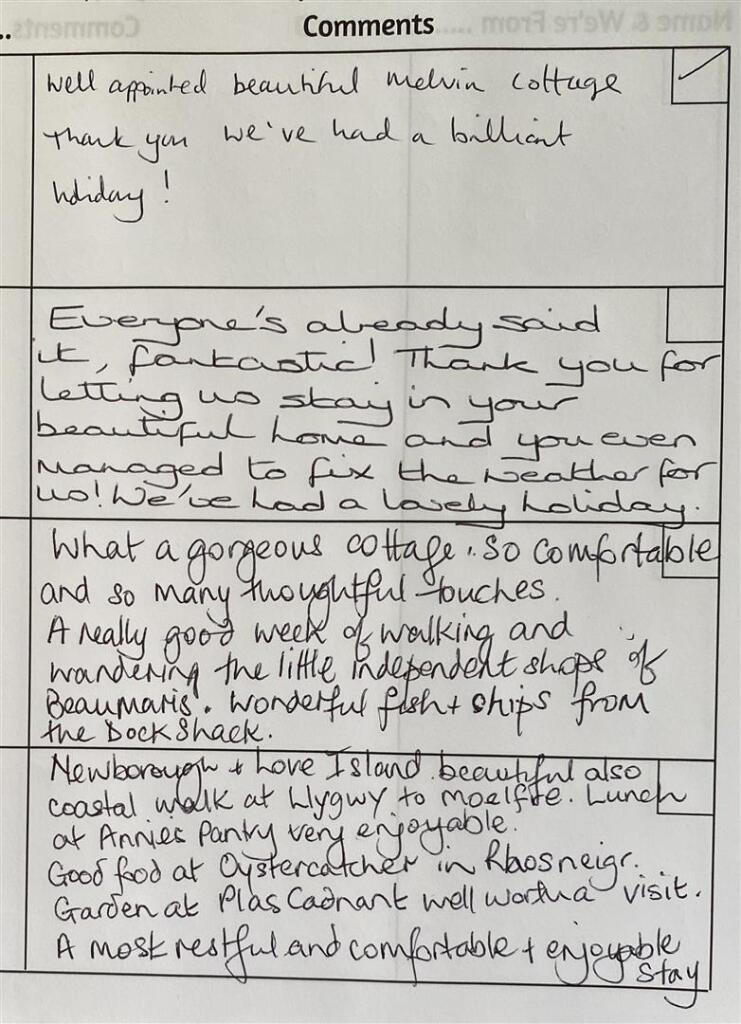 Comments
Well appointed beautiful Melvin cottage
Thank you we've had a brilliant
holiday!
Everyone's already said
it, fantastic! Thank you for
letting us stay in your
beautiful home and you even
managed to fix the weather for
us! We've had a lovely holiday.
What a gorgeous cottage. So comfortable
and so many thoughtful touches.
A really good week of walking and
wandering the little independent shops of
Beaumaris. Wonderful fish + chips from
the Dock Shack.
Newborough + Love Island beautiful also
coastal walk at Llygwy to Moelfre. Lunch
at Annies Pantry very enjoyable.
Good food at Oystercatcher in Rhosneigr.
Garden at Plas Cadnant well worth a visit.
A most restful and comfortable + enjoyable
stay